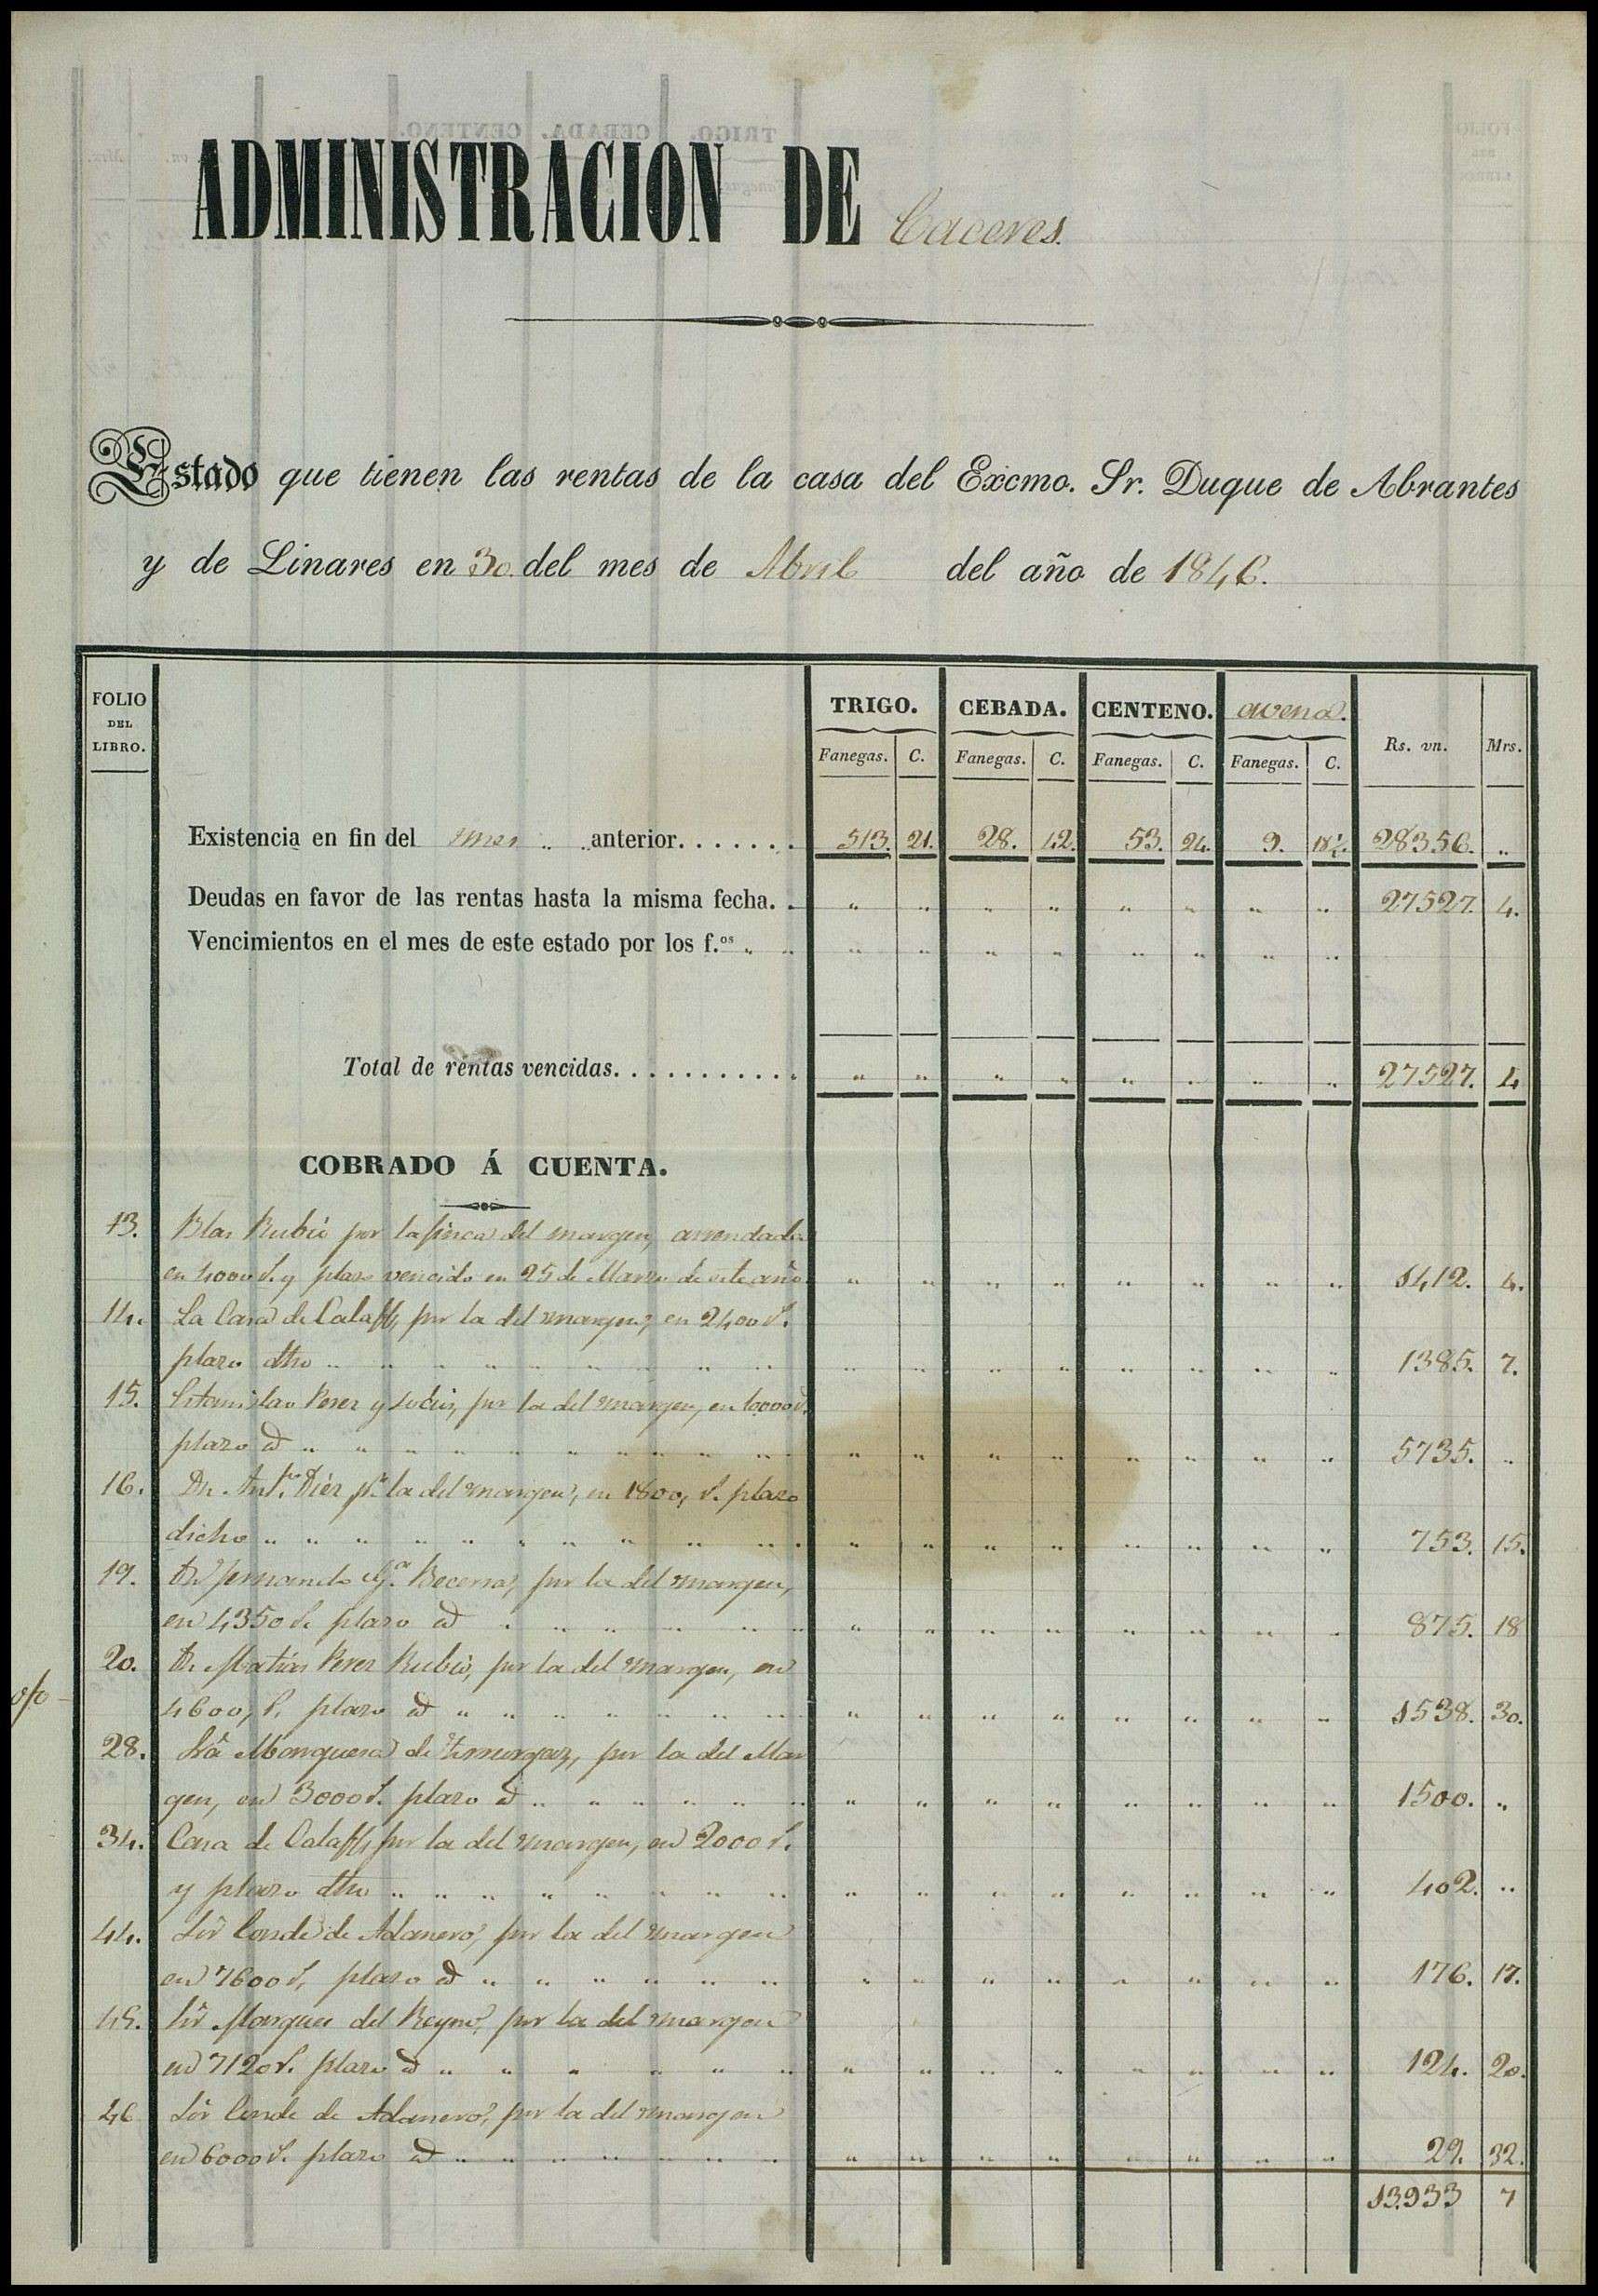 ADMINISTRACION DE Caceres.
Estado que tienen las rentas de la casa del Excmo. Sr. Duque de Abrantes
y de Linares en 30 del mes de Abril del año de 1846.
FOLIO DEL LIBRO. TRIGO. CEBADA. CENTENO. avena. Rs. vn. Mrs.
Fanegas. C. Fanegas. C. Fanegas. C. Fanegas. C.
Existencia en fin del mes " " anterior....... 513. 21. 28. 42. 53. 24. 9. 28356. "
Deudas en favor de las rentas hasta la misma fecha. . " " " " " " " " 27527. 4.
Vencimientos en el mes de este estado por los f.os " " " " " " " " " "
Total de rentas vencidas........... " " " " " " " " 27527. 4
COBRADO Á CUENTA.
13. Blas Rubio por la finca del margen, arrendada
en 4000 r. y plazo vencido en 25 de Marzo de este año " " " " " " " " 1412. 4.
14. La Casa de Calaff, por la del margen, en 2400 r.
plazo dho " " " " " " " " " " " " " " " " " " 1385. 7.
15. Estanislao Perez y socios, por la del margen, en 10000 r.
plazo id " " " " " " " " " " " " " " " " " " " 5735. "
16. Dn. Ant.o Diez pr. la del margen, en 1800, r. plazo
dicho " " " " " " " " " " " " " " " " " " " 753. 15.
19. Dn Fernando Ga. Becerra, por la del margen,
en 4350 r. plazo id " " " " " " " " " " " " " " " 875. 18
20. Dn. Matias Perez Rubio, por la del margen, en
4600, r. plazo id " " " " " " " " " " " " " " " " 1538. 30.
28. Sra Marquesa de por la del Mar
gen, en 3000 r. plazo id " " " " " " " " " " " " " " 1500. "
34. Casa de Calaff, por la del margen, en 2000 r.
y plazo dho " " " " " " " " " " " " " " " " " 402. "
44. Sor Conde de Adanero, por la del margen
en 7600 r. plazo id " " " " " " " " " " " " " " " 176. 17.
45. Sor Marques del Reyno, por la del margen
en 7120 r. plazo id " " " " " " " " " " " " " " 124. 20.
46 Sor Conde de Adanero, por la del margen
en 6000 r. plazo id " " " " " " " " " " " " " " " 29. 32.
13.933 7